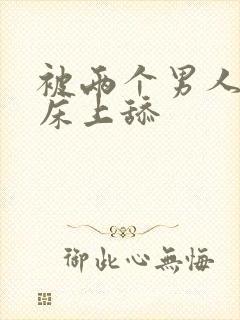 被两个男人
床上舔
御此心無悔